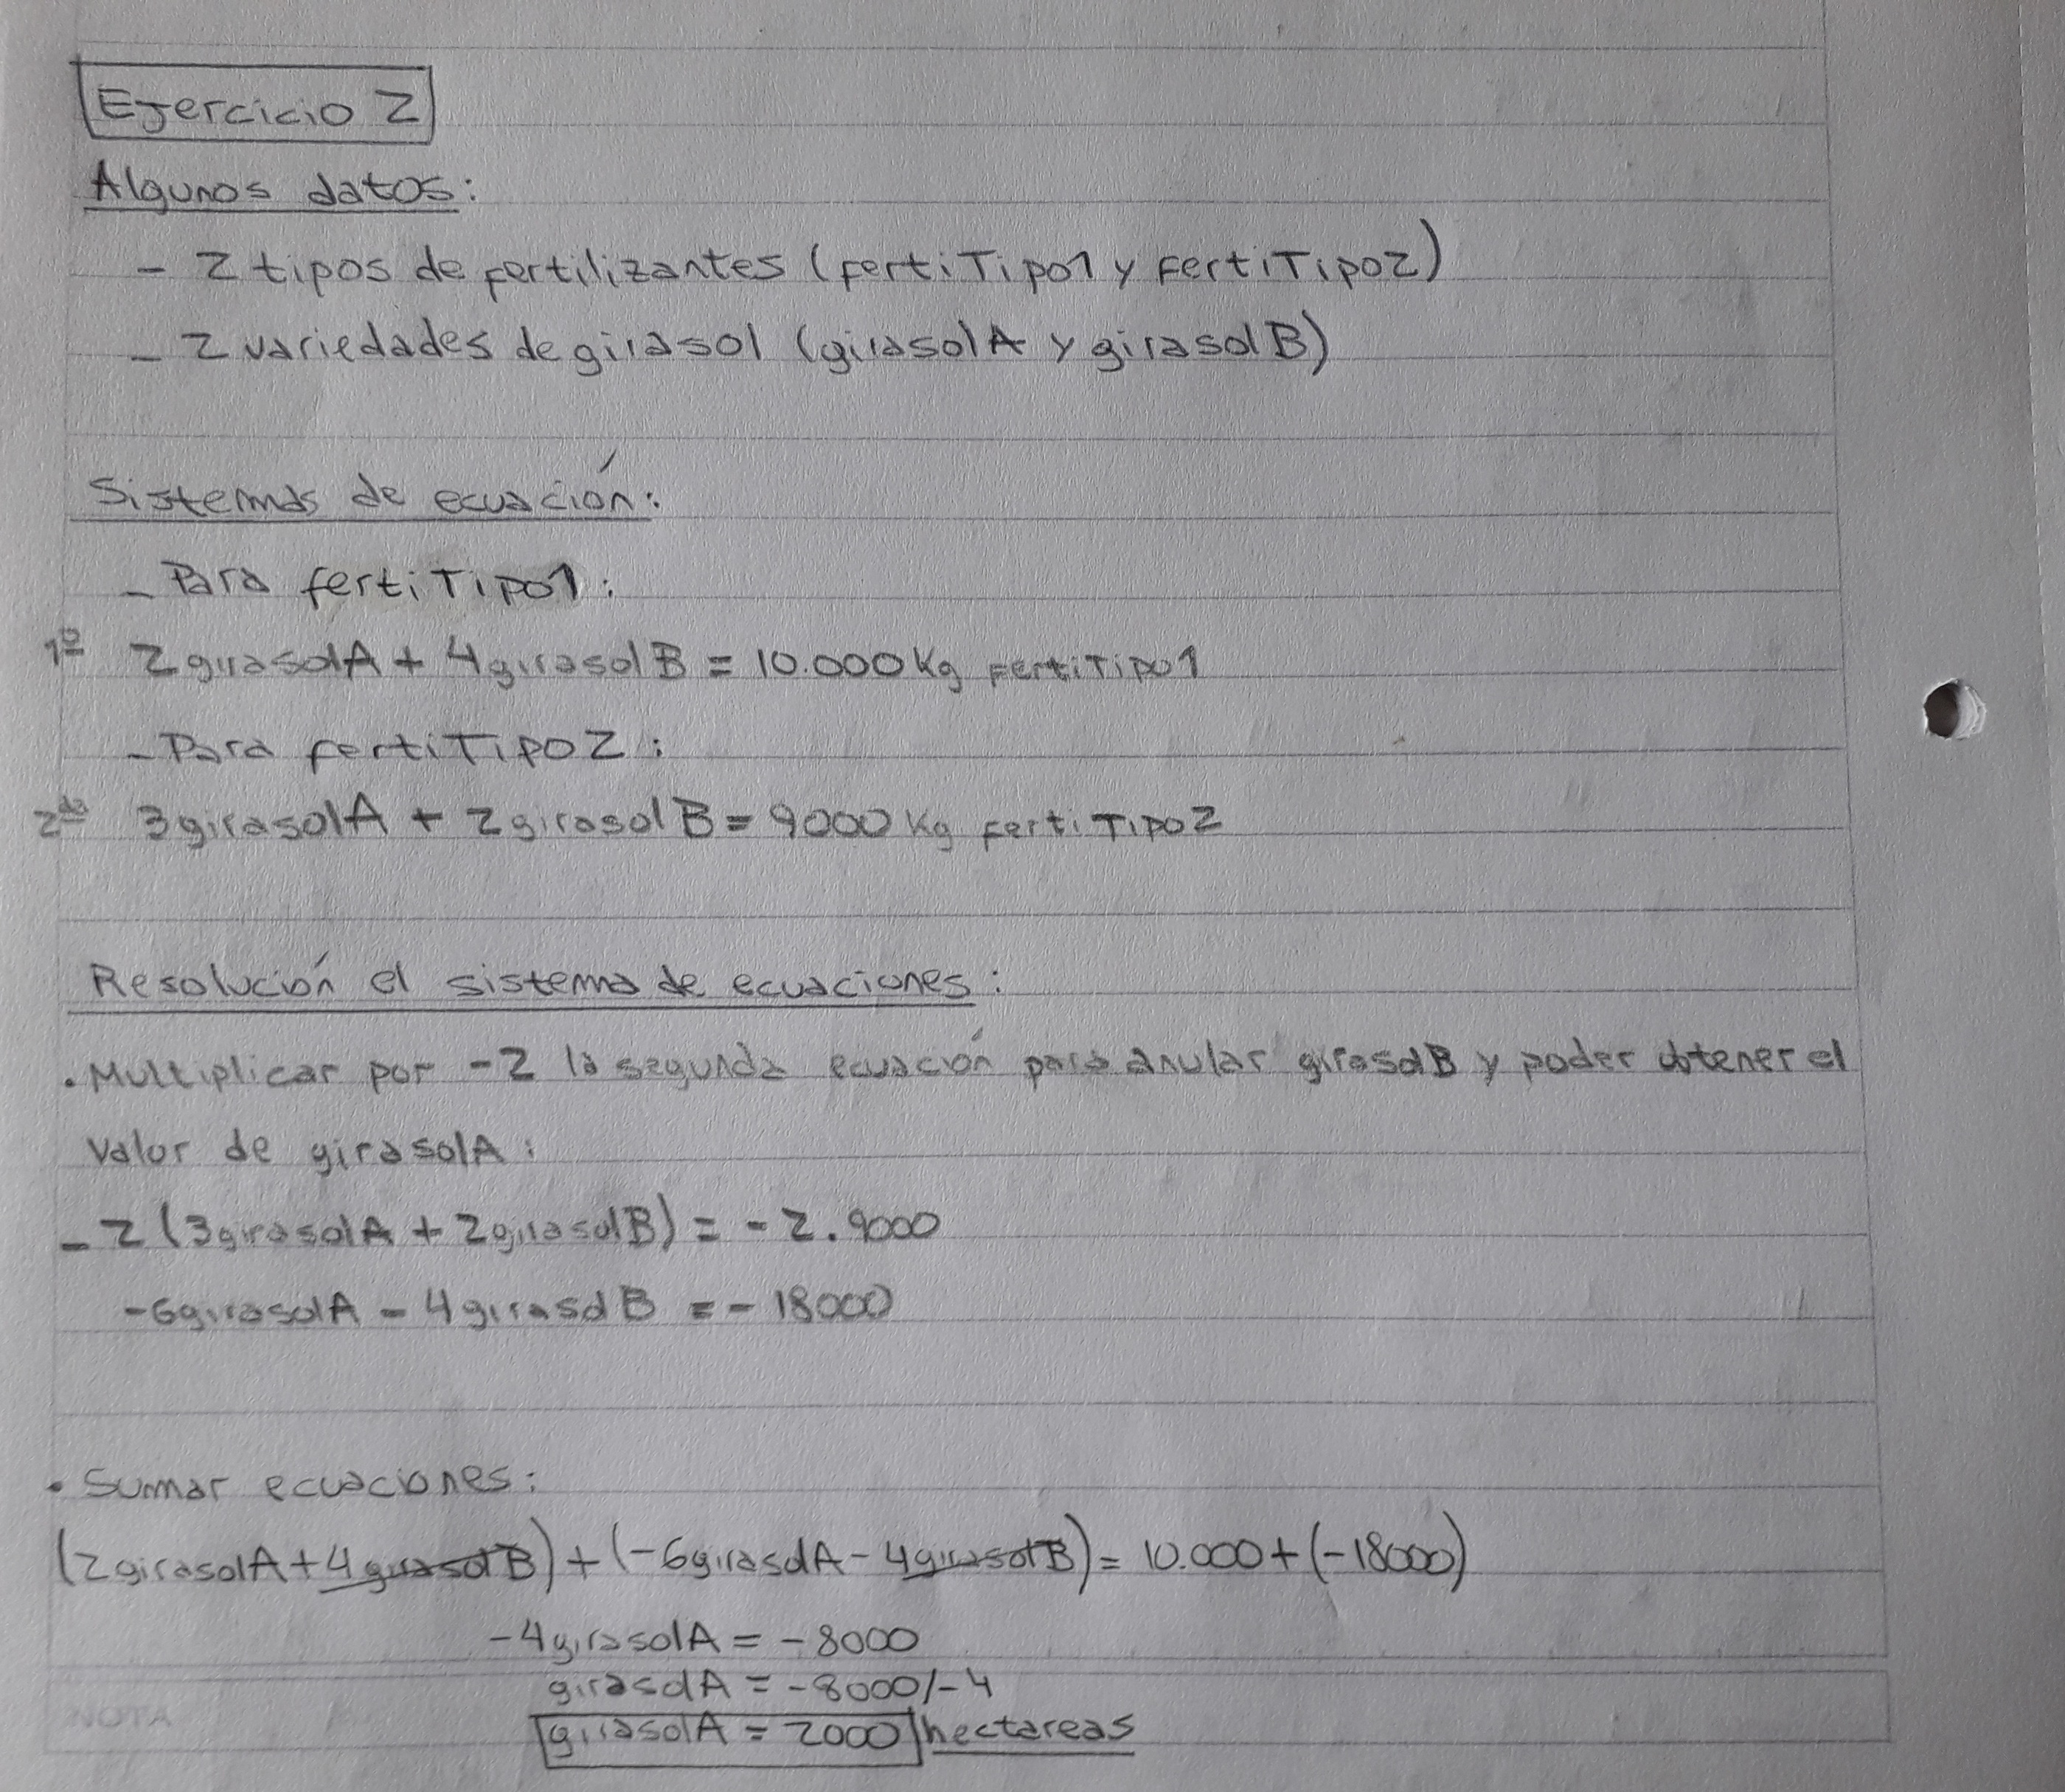 Ejercicio 2
Algunos datos:
- 2 tipos de fertilizantes (fertiTipo1 y fertiTipo2)
- 2 variedades de girasol (girasolA y girasolB)
Sistemas de ecuación:
- Para fertiTipo1:
1º 2girasolA + 4girasolB = 10.000 Kg fertiTipo1
- Para fertiTipo2:
2da 3girasolA + 2girasolB = 9000 Kg fertiTipo2
Resolución el sistema de ecuaciones:
• Multiplicar por -2 la segunda ecuación para anular girasolB y poder obtener el
valor de girasolA:
-2(3girasolA + 2girasolB) = -2.9000
-6girasolA - 4girasolB = -18000
• Sumar ecuaciones:
(2girasolA + 4girasolB) + (-6girasolA - 4girasolB) = 10.000 + (-18000)
-4girasolA = -8000
girasolA = -8000/-4
girasolA = 2000 hectareas
NOTA